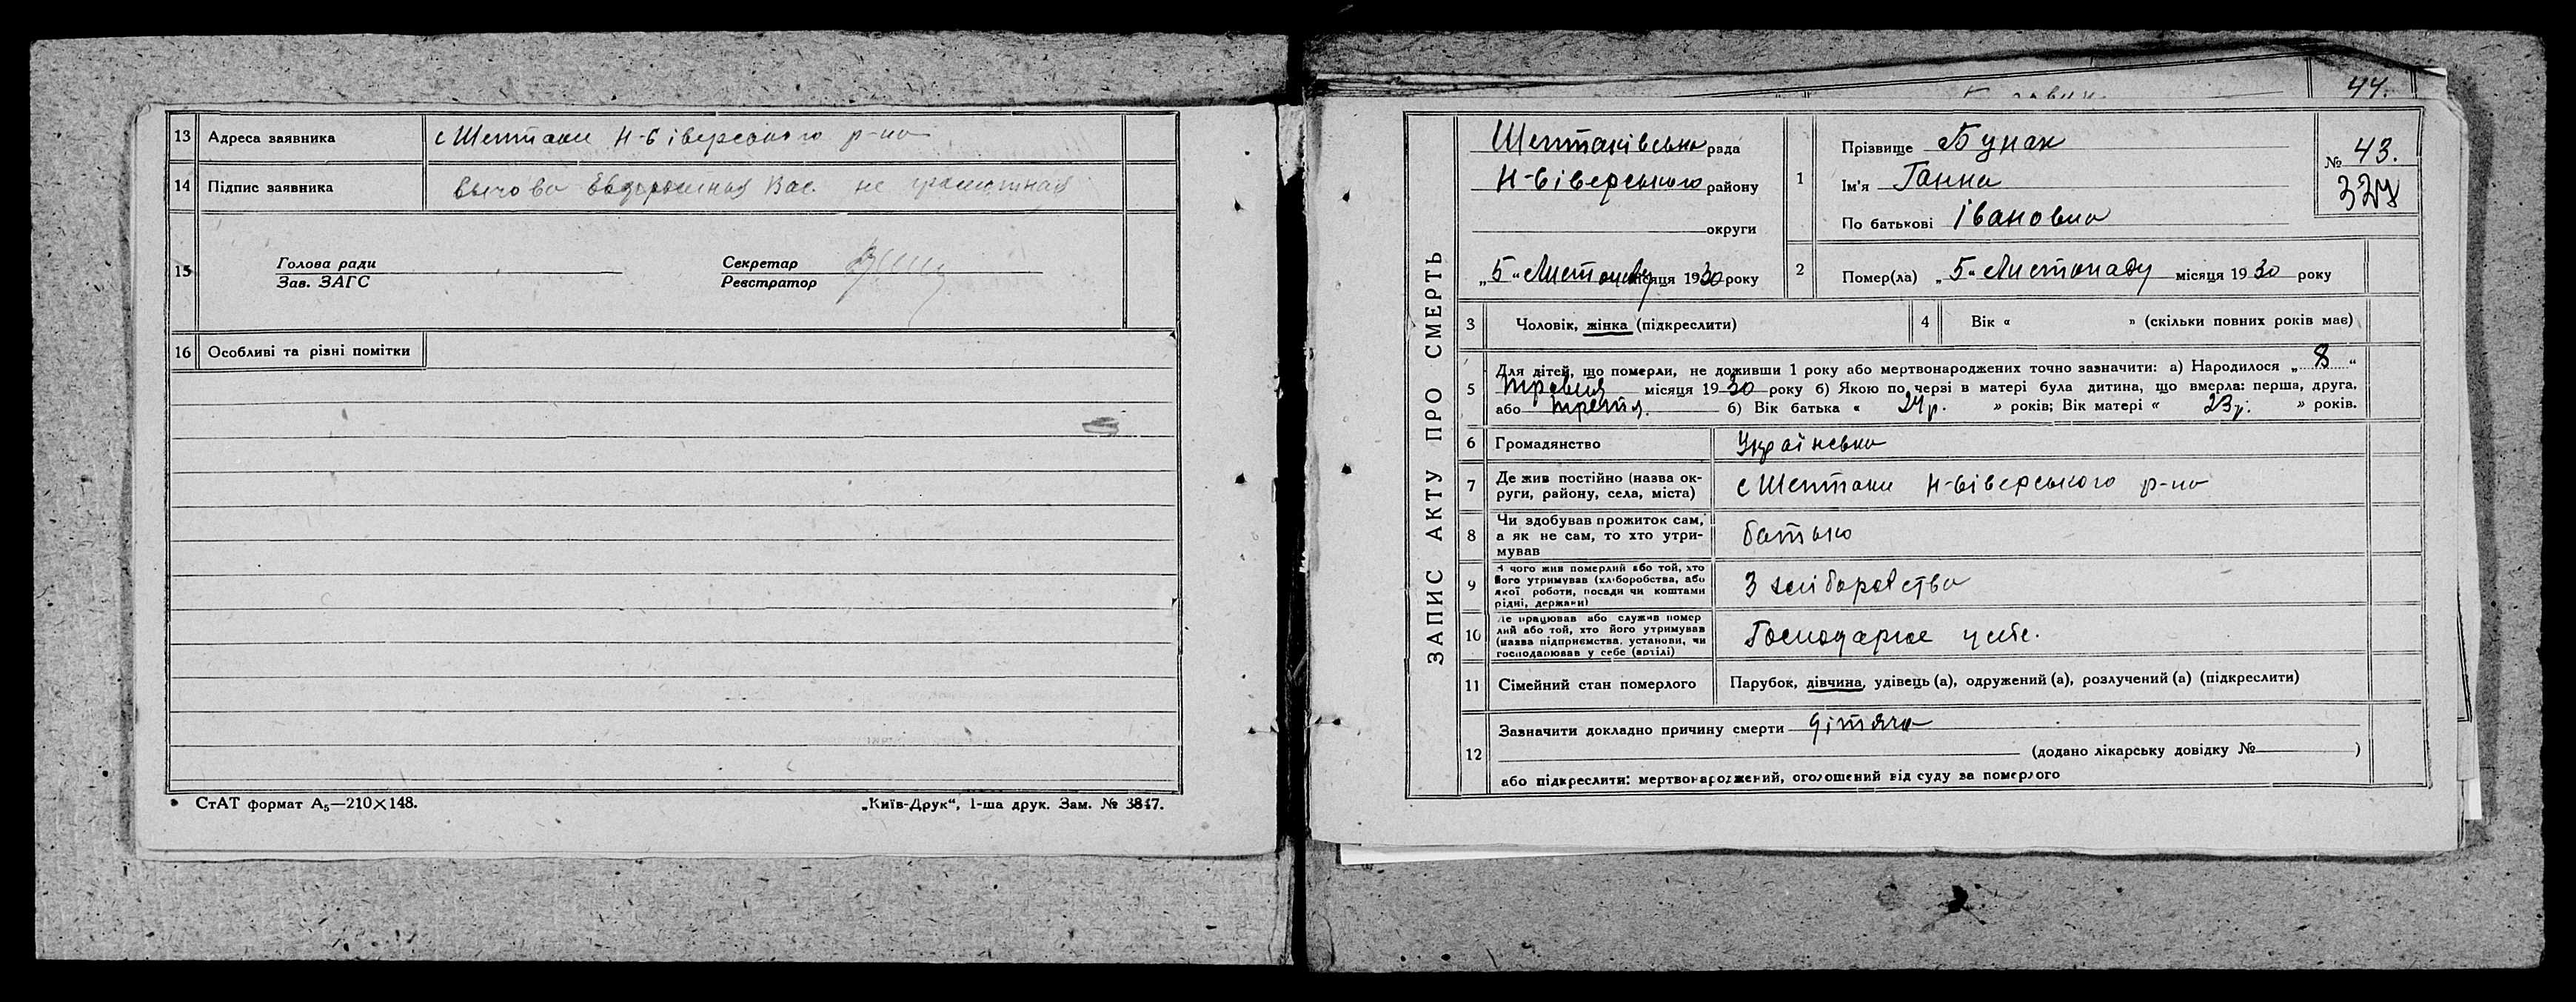 13 Адреса заявника с Шептаки Н-Сіверського р-на
14 Підпис заявника Евдокимья Вас. не грамотная
15 Голова ради Зав. ЗАГС
Секретар Реєстратор
16 Особливі та різні помітки
СтАТ формат А5—210×148.
„Київ-Друк“, 1-ша друк. Зам. № 3847.
44.
ЗАПИС АКТУ ПРО СМЕРТЬ
Шептаківська рада
Н-Сіверського району
округи
„5“ Листопаду місяця 1930 року
1 Прізвище Бунак
Ім'я Ганна
По батькові Івановна
№ 43.
328
2 Помер(ла) „5“ Листопаду місяця 1930 року
3 Чоловік, жінка (підкреслити)
4 Вік « » (скільки повних років має)
5 Для дітей, що померли, не доживши 1 року або мертвонароджених точно зазначити: а) Народилося „8“
травня місяця 1930 року б) Якою по черзі в матері була дитина, що вмерла: перша, друга,
або третя. б) Вік батька « 24р. » років; Вік матері « 23р. » років.
6 Громадянство Українська
7 Де жив постійно (назва округи, району, села, міста) с Шептаки Н-Сіверського р-на
8 Чи здобував прожиток сам, а як не сам, то хто утримував батько
9 З чого жив померлий або той, хто його утримував (хліборобства, або якої роботи, посади чи коштами рідні, держави) З хліборобства
10 Де працював або служив померлий або той, хто його утримував (назва підприємства, установи, чи господарював у себе (артілі) Господарює у себе.
11 Сімейний стан померлого Парубок, дівчина, удівець (а), одружений (а), розлучений (а) (підкреслити)
12 Зазначити докладно причину смерти дітяча
(додано лікарську довідку № )
або підкреслити: мертвонароджений, оголошений від суду за померлого